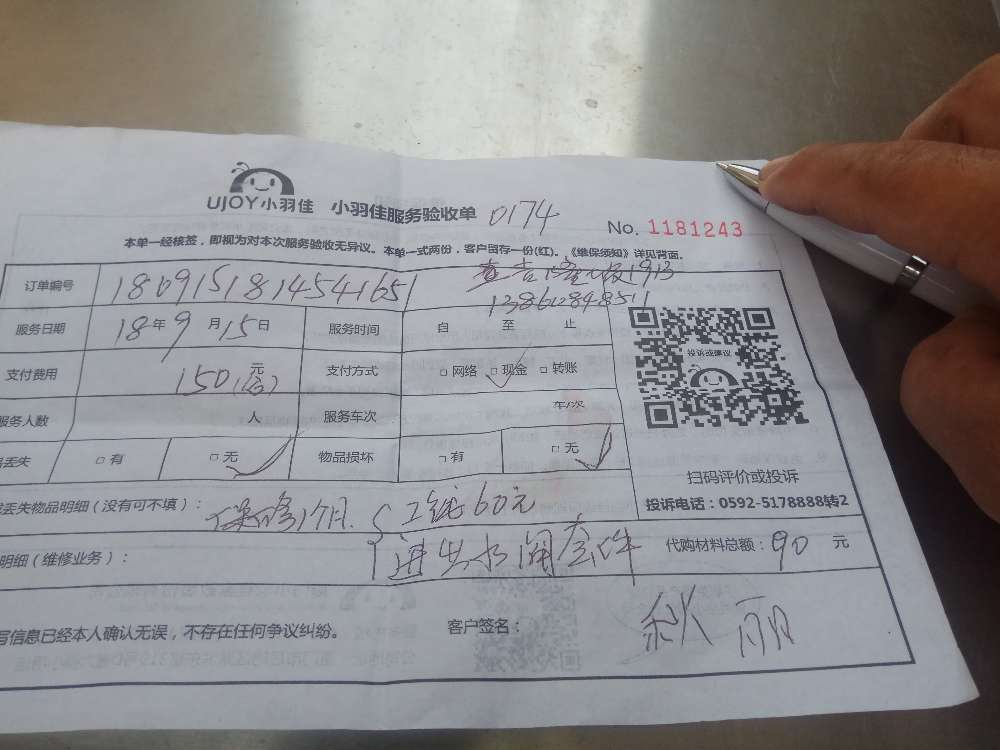 UJOY小羽佳 小羽佳服务验收单 0174
No. 1181243
本单一经核签，即视为对本次服务验收无异议。本单一式两份，客户留存一份(红)。《维保须知》详见背面。
订单编号 1809151814541651
138612898511
服务日期 18年9月15日 服务时间 自 至 止
支付费用 150 元 支付方式 □网络 □现金 □转账
投诉或建议
服务人数 人 服务车次 车/次
丢失 □有 □无 物品损坏 □有 □无
扫码评价或投诉
投诉电话：0592-5178888转2
丢失物品明细（没有可不填）： 保修1个月. 工钱60元
明细（维修业务）： 进出水阀套件 代购材料总额：90 元
写信息已经本人确认无误，不存在任何争议纠纷。 客户签名： 丽